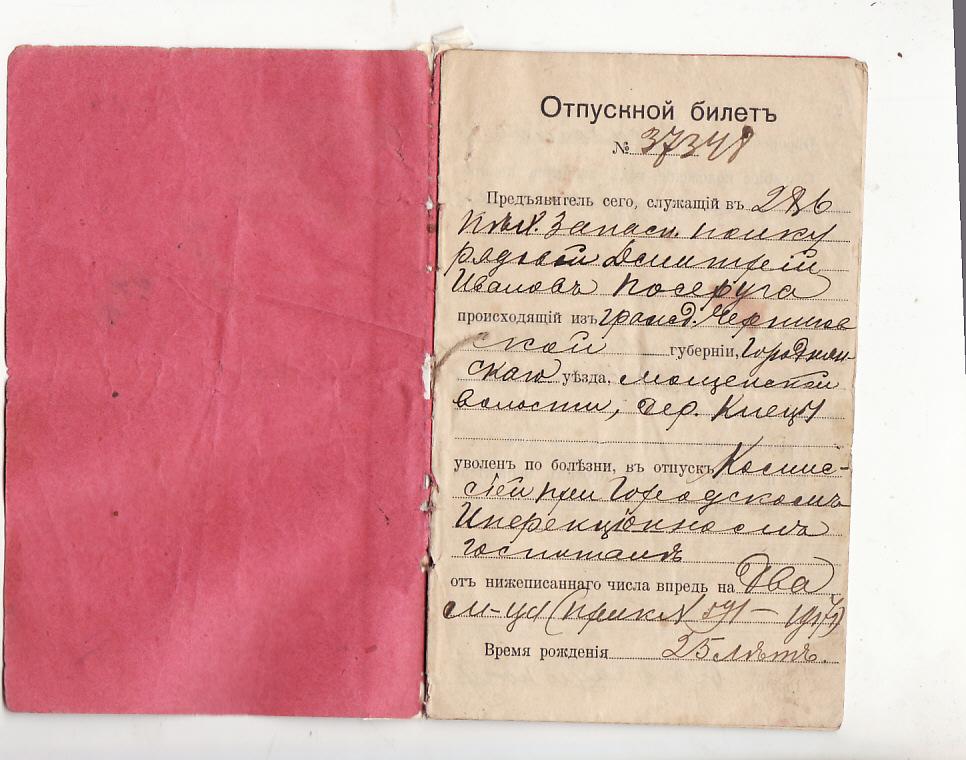 Отпускной билетъ
№ 37348
Предъявитель сего, служащій въ 286
пѣх. запасн. полку
рядовой Дмитрій
Ивановъ Посеруга
происходящій изъ гражд. Чернигов
ской губерніи, Городнян
скаго уѣзда,
волости, дер.
уволенъ по болѣзни, въ отпускъ Комис-
сіей при Городскомъ
Инфекціонномъ
госпиталѣ
отъ нижеписаннаго числа впредь на Два
м-ца
Время рожденія 25 лѣтъ.